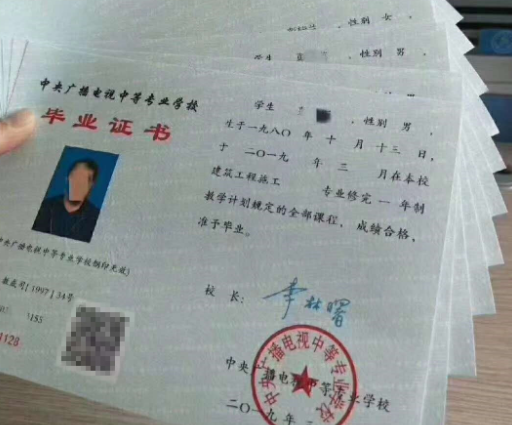 性别 女,
学生
性别 男,
中央广播电视中等专业学校
毕业证书
学生
性别 男,
生于一九八〇年 十 月 十三 日,
于 二〇一九 年 三 月在本校
建筑工程施工 专业修完 一 年制
教学计划规定的全部课程, 成绩合格,
准予毕业。
中央广播电视中等专业学校钢印无效)
[1997]34号
校 长: 李林曙
1128
中央广播电视中等专业学校
中央广播电视中等专业学校
二〇一九年